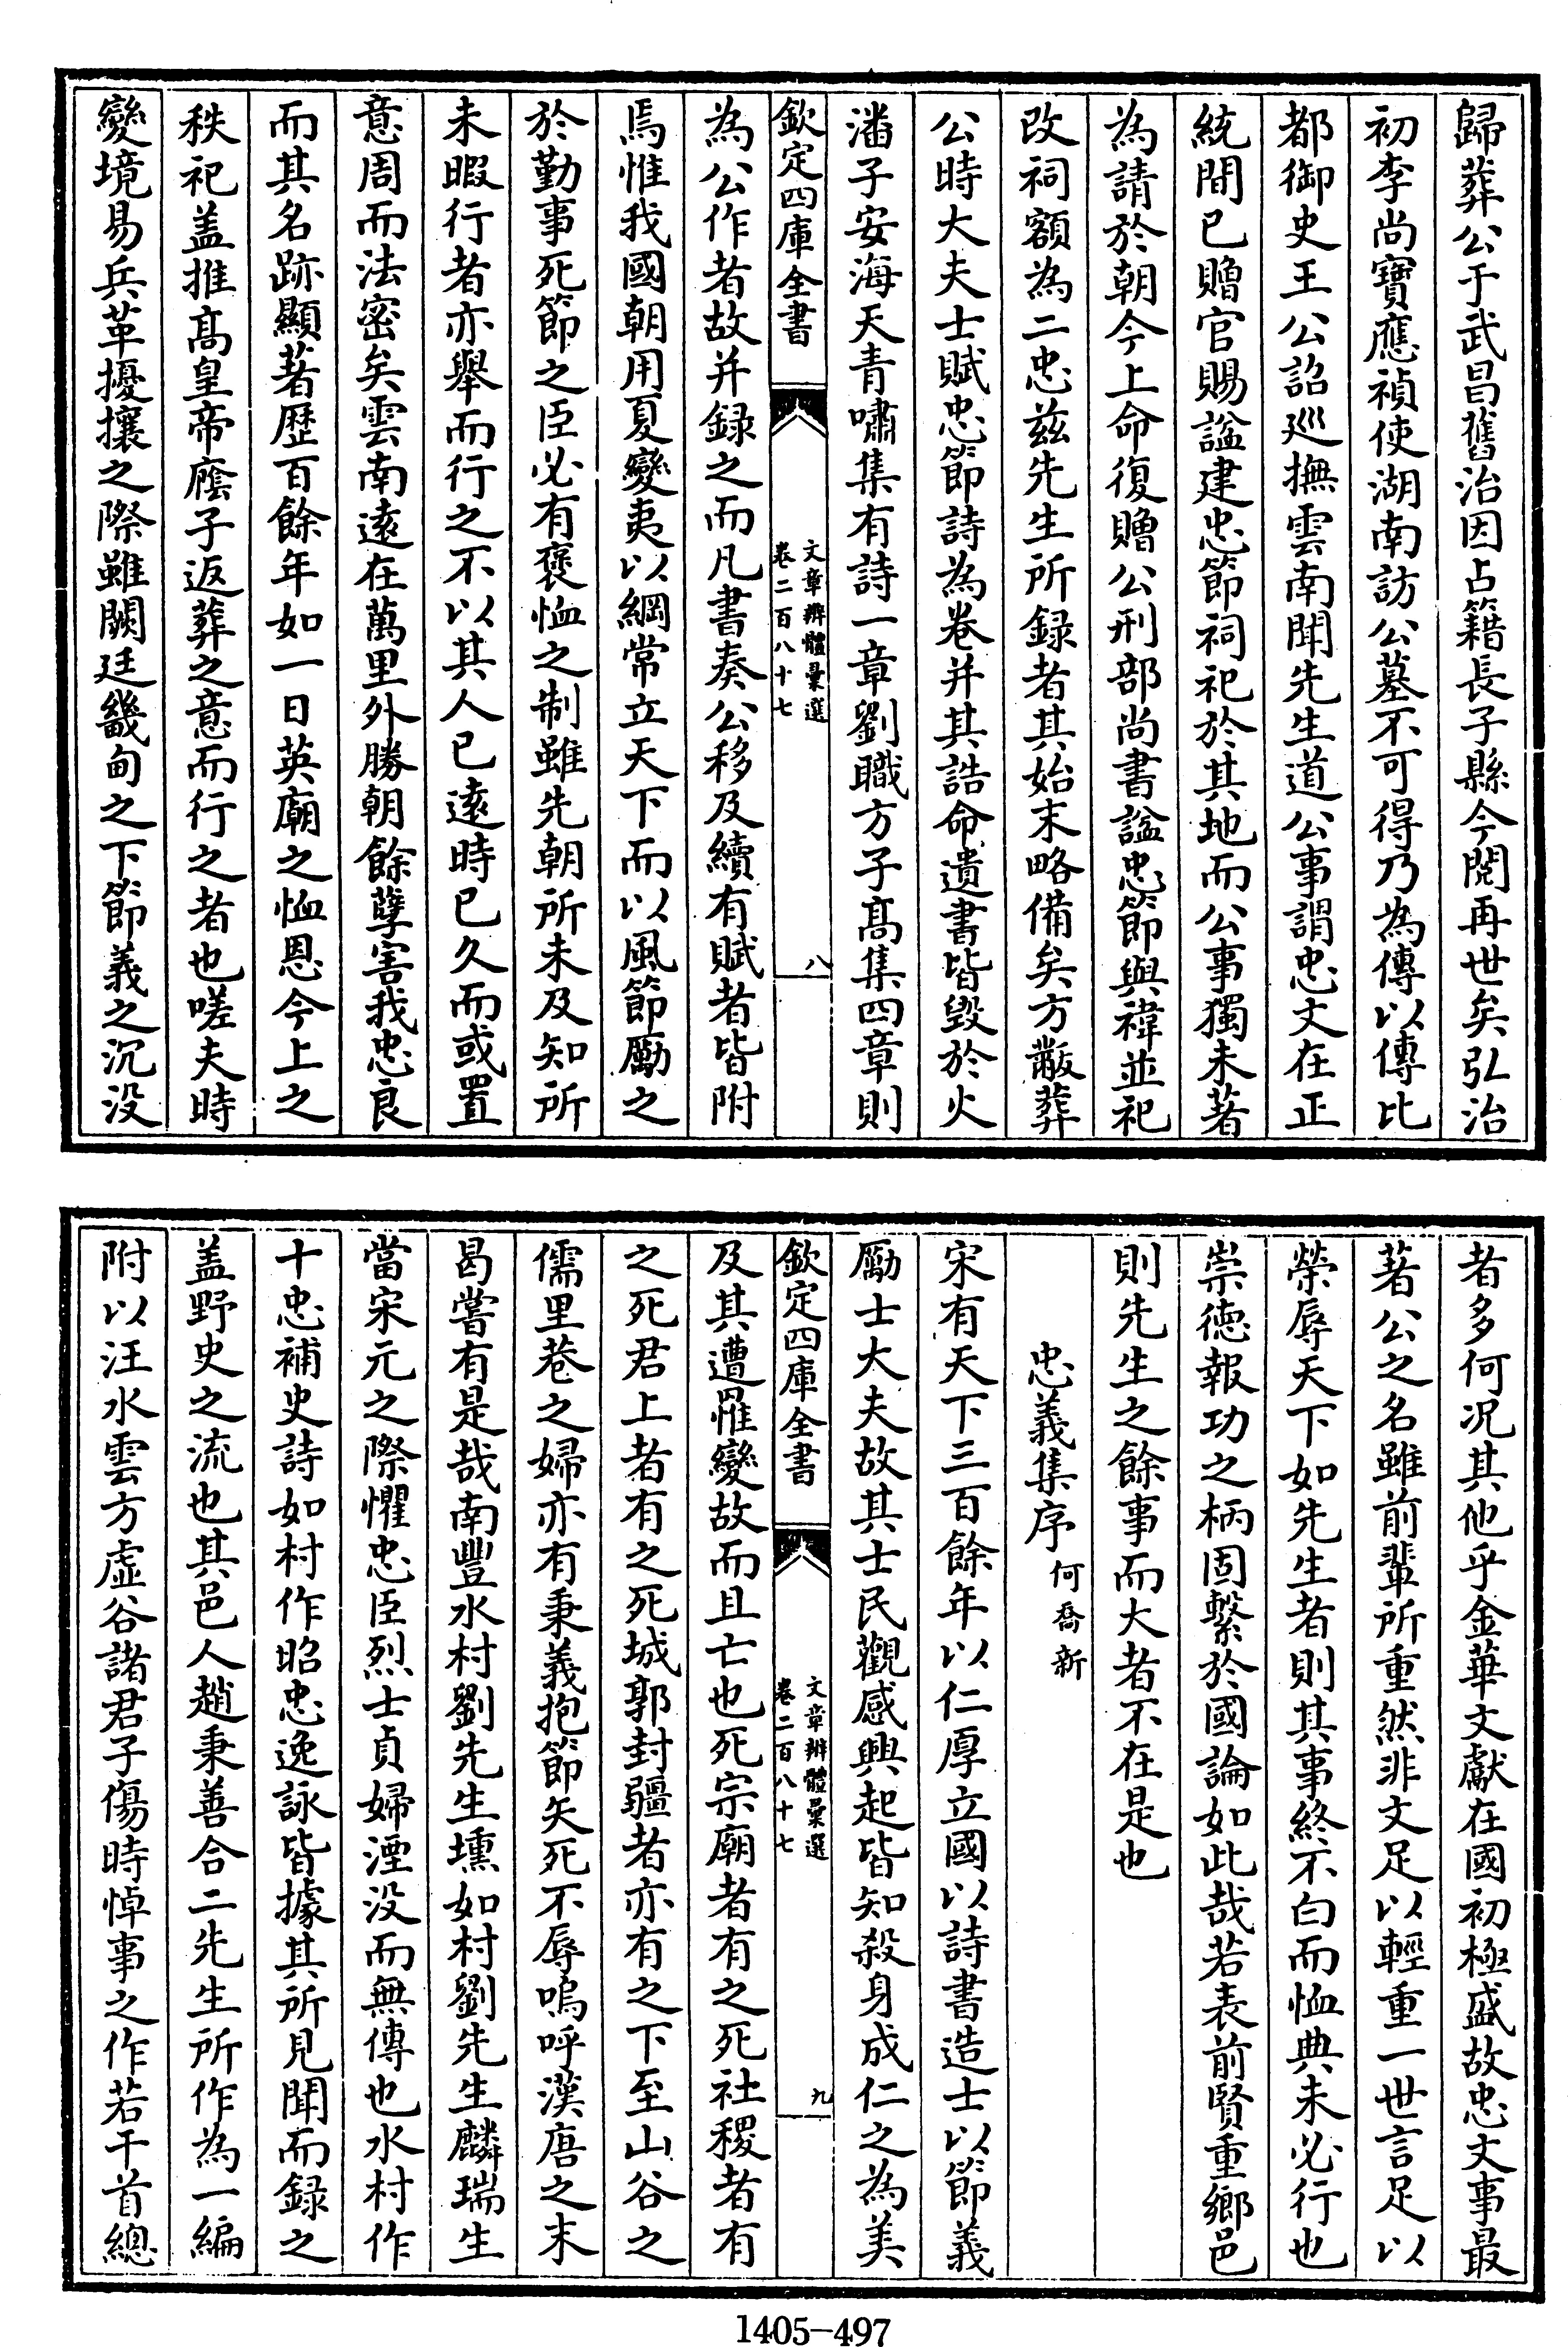 歸葬公于武昌舊治因占籍長子縣今閱再世矣弘治
初李尚寶應禎使湖南訪公墓不可得乃為傳以傳比
都御史王公詔廵撫雲南聞先生道公事謂忠文在正
統間已贈官賜諡建忠節祠祀於其地而公事獨未著
為請於朝今上命復贈公刑部尚書諡忠節與禕並祀
改祠額為二忠兹先生所録者其始末略備矣方斂葬
公時大夫士賦忠節詩為卷并其誥命遺書皆毀於火
潘子安海天青嘯集有詩一章劉職方子髙集四章則
欽定四庫全書
文章辨體彚選
卷二百八十七
八
為公作者故并録之而凡書奏公移及續有賦者皆附
焉惟我國朝用夏變夷以綱常立天下而以風節勵之
於勤事死節之臣必有褒恤之制雖先朝所未及知所
未暇行者亦舉而行之不以其人已遠時已久而或置
意周而法密矣雲南遠在萬里外勝朝餘孽害我忠良
而其名跡顯著歴百餘年如一日英廟之恤恩今上之
秩祀盖推髙皇帝廕子返葬之意而行之者也嗟夫時
變境易兵革擾攘之際雖闕廷畿甸之下節義之沉没
者多何况其他乎金華文獻在國初極盛故忠文事最
著公之名雖前輩所重然非文足以輕重一世言足以
榮辱天下如先生者則其事終不白而恤典未必行也
崇德報功之柄固繫於國論如此哉若表前賢重鄉邑
則先生之餘事而大者不在是也
忠義集序 何喬新
宋有天下三百餘年以仁厚立國以詩書造士以節義
勵士大夫故其士民觀感興起皆知殺身成仁之為美
欽定四庫全書
文章辨體彚選
卷二百八十七
九
及其遭罹變故而且亡也死宗廟者有之死社稷者有
之死君上者有之死城郭封疆者亦有之下至山谷之
儒里巷之婦亦有秉義抱節矢死不辱嗚呼漢唐之末
曷嘗有是哉南豐水村劉先生壎如村劉先生麟瑞生
當宋元之際懼忠臣烈士貞婦湮没而無傳也水村作
十忠補史詩如村作昭忠逸詠皆據其所見聞而録之
盖野史之流也其邑人趙秉善合二先生所作為一編
附以汪水雲方虛谷諸君子傷時悼事之作若干首總
1405-497